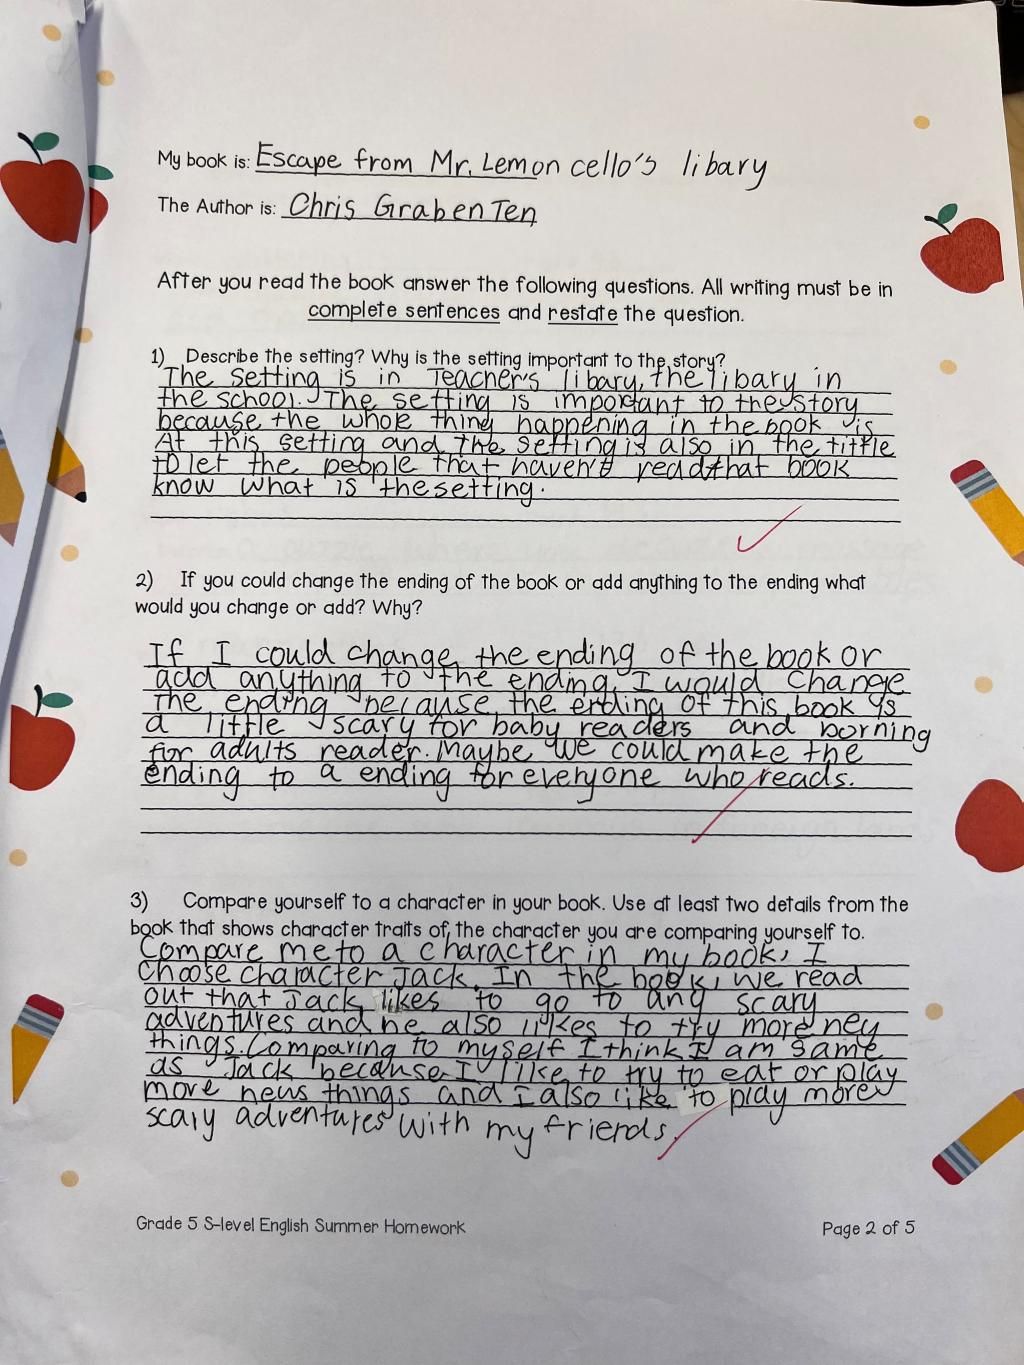 My book is: Escape from Mr. Lemon cello's libary
The Author is: Chris GrabenTen
After you read the book answer the following questions. All writing must be in
complete sentences and restate the question.
1) Describe the setting? Why is the setting important to the story?
The setting is in Teacher's libary, the libary in
the school. The setting is important to the story
because the whole thing happening in the book is
At this setting and the setting is also in the tittle
to let the people that haven't read that book
know what is the setting.
2) If you could change the ending of the book or add anything to the ending what
would you change or add? Why?
If I could change the ending of the book or
add anything to the ending, I would change
The ending because the ending of this book is
a little scary for baby readers and borning
for adults reader. Maybe we could make the
ending to a ending for everyone who reads.
3) Compare yourself to a character in your book. Use at least two details from the
book that shows character traits of, the character you are comparing yourself to.
Compare me to a character in my book, I
choose character Jack. In the book, we read
out that Jack likes to go to any scary
adventures and he also likes to try more ney
things. Comparing to myself I think I am same
as Jack because I like to try to eat or play
more news things and i also like to play more
scary adventures with my friends.
Grade 5 S-level English Summer Homework
Page 2 of 5